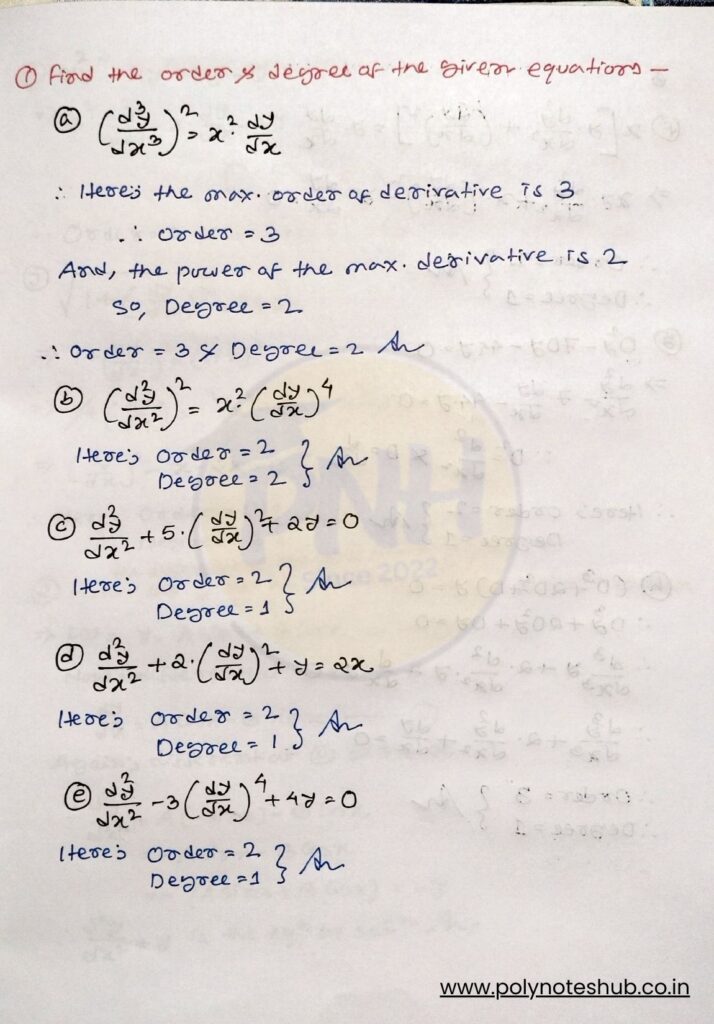 ① Find the order & degree of the given equations —
ⓐ (d³y/dx³)² = x². dy/dx
∴ Here's the max. order of derivative is 3
∴ Order = 3
And, the power of the max. derivative is 2
So, Degree = 2
∴ Order = 3 & Degree = 2 An
ⓑ (d²y/dx²)² = x². (dy/dx)⁴
Here's Order = 2
Degree = 2 } An
ⓒ d²y/dx² + 5.(dy/dx)² + 2y = 0
Here's Order = 2
Degree = 1 } An
since 2022
ⓓ d²y/dx² + 2.(dy/dx)² + y = 2x
Here's Order = 2
Degree = 1. } An
ⓔ d²y/dx² - 3(dy/dx)⁴ + 4y = 0
Here's Order = 2
Degree = 1 } An
PNH
www.polynoteshub.co.in